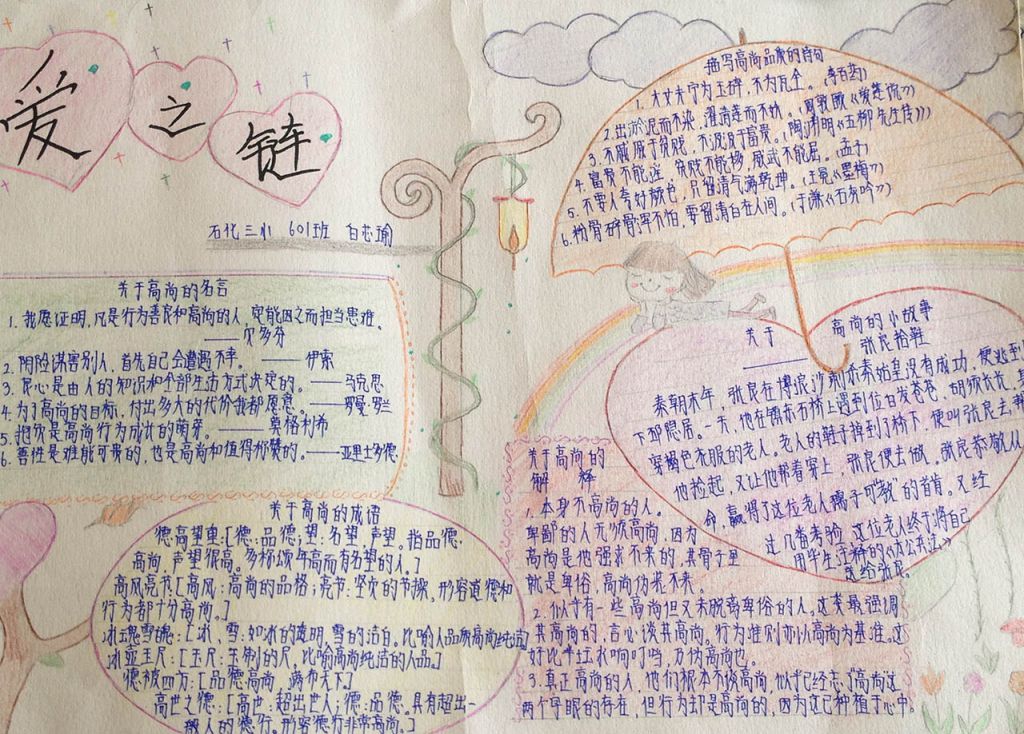 爱之链
石化三小 601班 白芯瑜
关于高尚的名言
1. 我愿证明,凡是行为善良和高尚的人,定能因之而担当患难。
——贝多芬
2. 阴险谋害别人,首先自己会遭遇不幸。——伊索
3. 良心是由人的知识和全部生活方式决定的。——马克思
4. 为了高尚的目标,付出多大的代价我都愿意。——罗曼·罗兰
5. 抱负是高尚行为成长的萌芽。——莫格利希
6. 善性是难能可贵的,也是高尚和值得称赞的。——亚里士多德
关于高尚的成语
德高望重:[德:品德;望:名望,声望。指品德
高尚,声望很高。多称颂年高而有名望的人。]
高风亮节[高风:高尚的品格;亮节:坚贞的节操。形容道德和
行为都十分高尚。]
冰魂雪魄:[冰、雪:如冰的透明,雪的洁白。比喻人品质高尚纯洁]
冰壶玉尺:[玉尺:玉制的尺,比喻高尚纯洁的人品。]
德被四方:[品德高尚,满布天下]
高世之德:[高世:超出世人;德:品德。具有超出一
般人的德行。形容德行非常高尚。]
描写高尚品质的诗句
1. 大丈夫宁为玉碎,不为瓦全。(李百药)
2. 出淤泥而不染,濯清莲而不妖。(周敦颐《爱莲说》)
3. 不戚戚于贫贱,不汲汲于富贵。(陶渊明《五柳先生传》)
4. 富贵不能淫,贫贱不能移,威武不能屈。(孟子)
5. 不要人夸好颜色,只留清气满乾坤。(王冕《墨梅》)
6. 粉骨碎骨浑不怕,要留清白在人间。(于谦《石灰吟》)
关于高尚的小故事
张良拾鞋
秦朝末年,张良在博浪沙刺杀秦始皇没有成功,便逃到
下邳隐居。一天,他在镇东石桥上遇到位白发苍苍、胡须长长、
穿褐色衣服的老人。老人的鞋子掉到了桥下,便叫张良去
他捡起,又让他帮着穿上,张良便去做。张良恭敬从
命,赢得了这位老人"孺子可教"的首肯。又经
过几番考验,这位老人终于将自己
用毕生
送给张良。
关于高尚的
解 释
1. 本身不高尚的人。
卑鄙的人无须高尚,因为
高尚是他强求不来的,其骨子里
就是卑俗,高尚伪装不来。
2. 似乎有一些高尚但又未脱离卑俗的人,这类最强调
其高尚的,言必谈其高尚。行为准则亦以高尚为基准。这
好比半缸水响叮当,乃伪高尚也。
3. 真正高尚的人,他们根本不谈高尚,似乎已经忘了高尚这
两个字眼的存在,但行为却是高尚的,因为这已种植于心中。